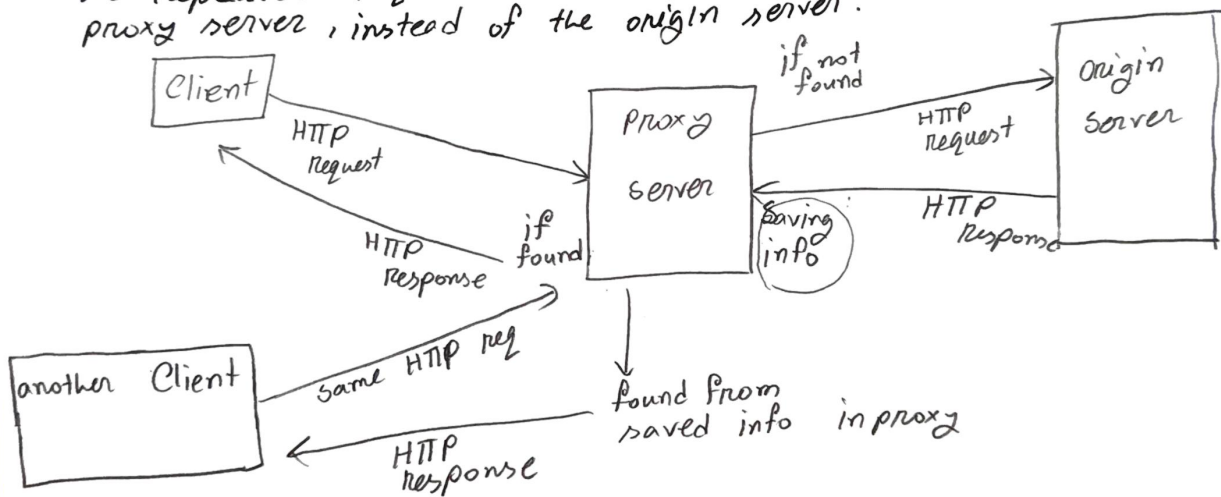 proxy server, instead of the origin server.
Client
HTTP
request
HTTP
response
if
found
proxy
server
if not
found
HTTP
request
HTTP
Response
Saving
info
origin
server
another Client
same HTTP req
HTTP
response
found from
saved info in proxy